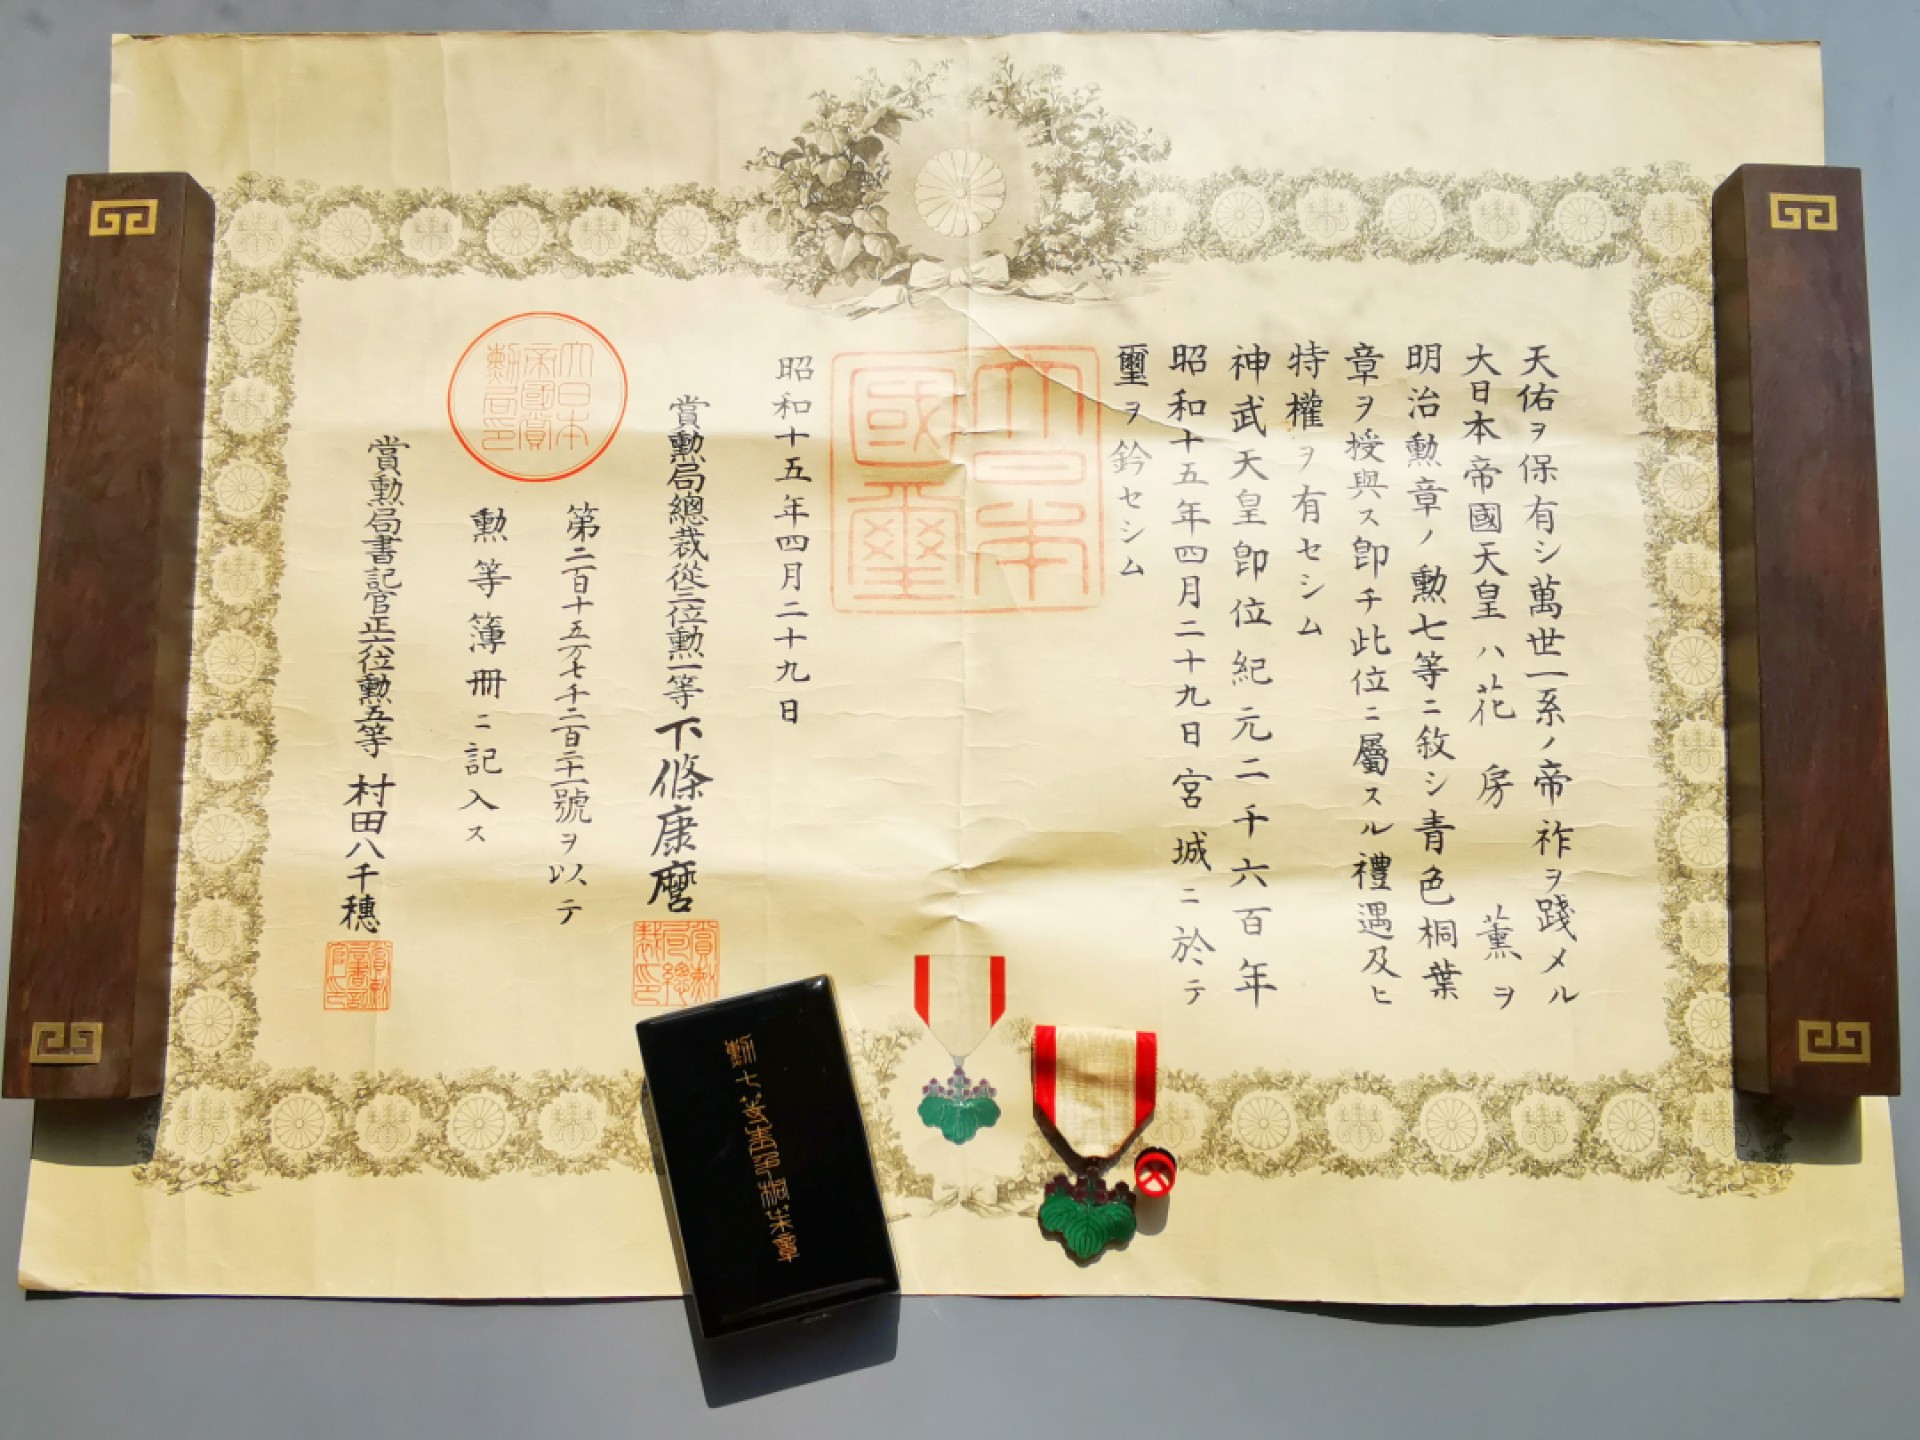 天佑ヲ保有シ萬世一系ノ帝祚ヲ踐メル
大日本帝國天皇ハ花房薫ヲ
明治勲章ノ勲七等ニ敘シ青色桐葉
章ヲ授與ス卽チ此位ニ屬スル禮遇及ヒ
特權ヲ有セシム
神武天皇卽位紀元二千六百年
昭和十五年四月二十九日宮城ニ於テ
璽ヲ鈐セシム
大日本
國璽
昭和十五年四月二十九日
賞勲局總裁從三位勲一等下條康麿
賞勲局總裁之印
第二百十五万七千二百二十一號ヲ以テ
勲等簿冊ニ記入ス
大日本
帝國賞
勲局印
賞勲局書記官正六位勲五等村田八千穗
勲七等青色桐葉章